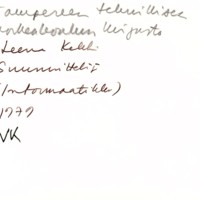 Tampereen teknillisen
korkeakoulun kirjasto
Leena Kokki
Suunnittelija
(Informaatikko)
1979
VK